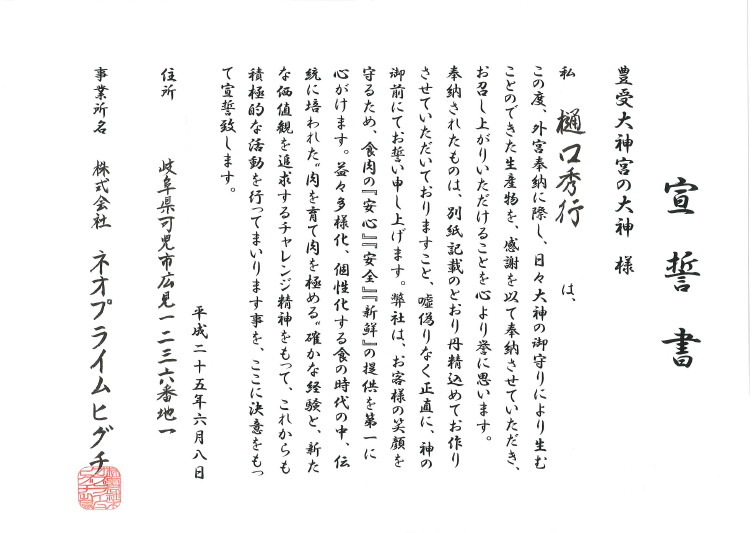 宣誓書
豊受大神宮の大神 様
私 樋口秀行 は、
この度、外宮奉納に際し、日々大神の御守りにより生む
ことのできた生産物を、感謝を以て奉納させていただき、
お召し上がりいただけることを心より誉に思います。
奉納されたものは、別紙記載のとおり丹精込めてお作り
させていただいておりますこと、嘘偽りなく正直に、神の
御前にてお誓い申し上げます。弊社は、お客様の笑顔を
守るため、食肉の『安心』『安全』『新鮮』の提供を第一に
心がけます。益々多様化、個性化する食の時代の中、伝
統に培われた〝肉を育て肉を極める〟確かな経験と、新た
な価値観を追求するチャレンジ精神をもって、これからも
積極的な活動を行ってまいります事を、ここに決意をもっ
て宣誓致します。
平成二十五年六月八日
住所 岐阜県可児市広見一二三六番地一
事業所名 株式会社 ネオプライムヒグチ